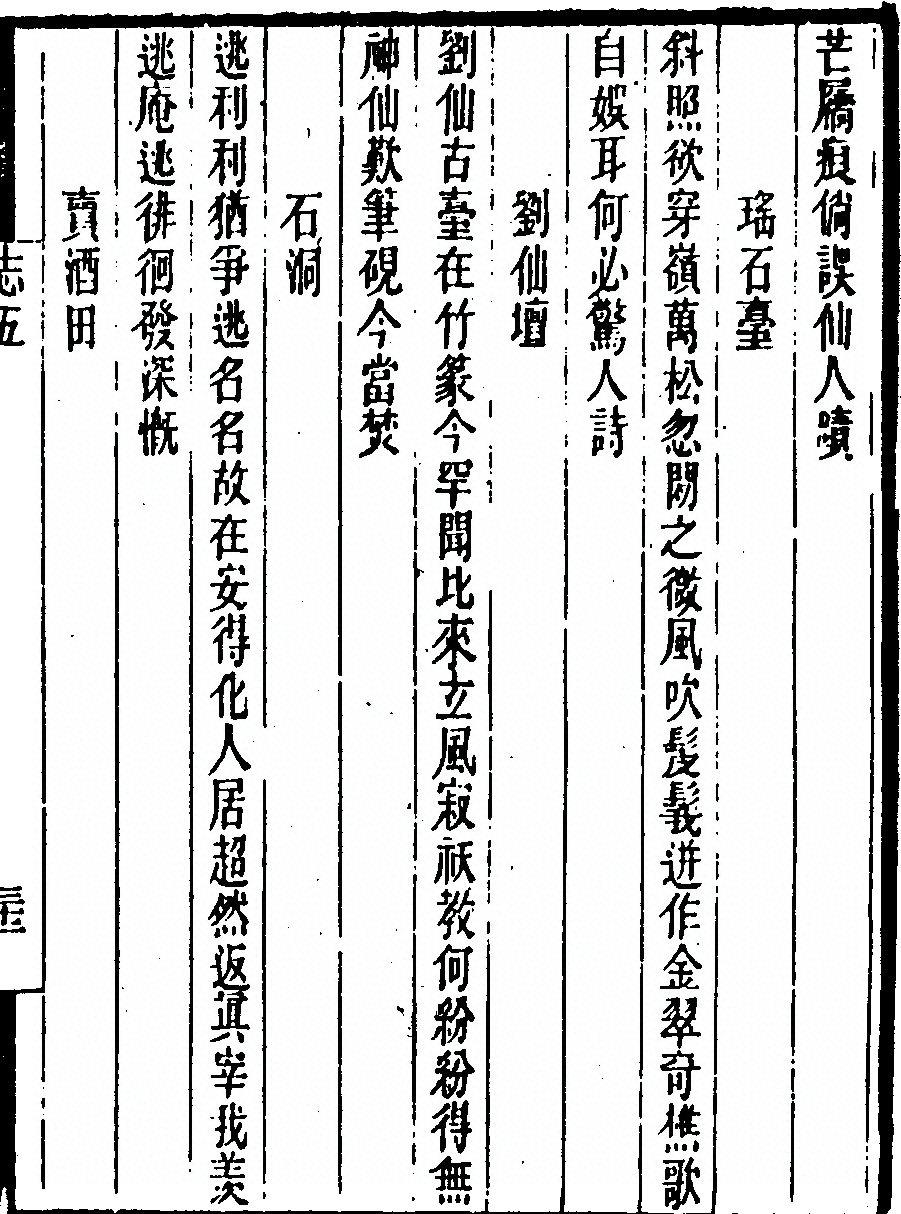 芒屩痕倘誤仙人嘖
瑤石臺
斜照欲穿嶺萬松忽悶之微風吹髮鬖迸作金翠奇樵歌
自娛耳何必驚人詩
劉仙壇
劉仙古臺在竹篆今罕聞比來玄風寂祇教何紛紛得無
神仙歎筆硯今當焚
石洞
逃利利猶爭逃名名故在安得化人居超然返眞宰我羨
逃庵逃徘徊發深慨
賣酒田
志五